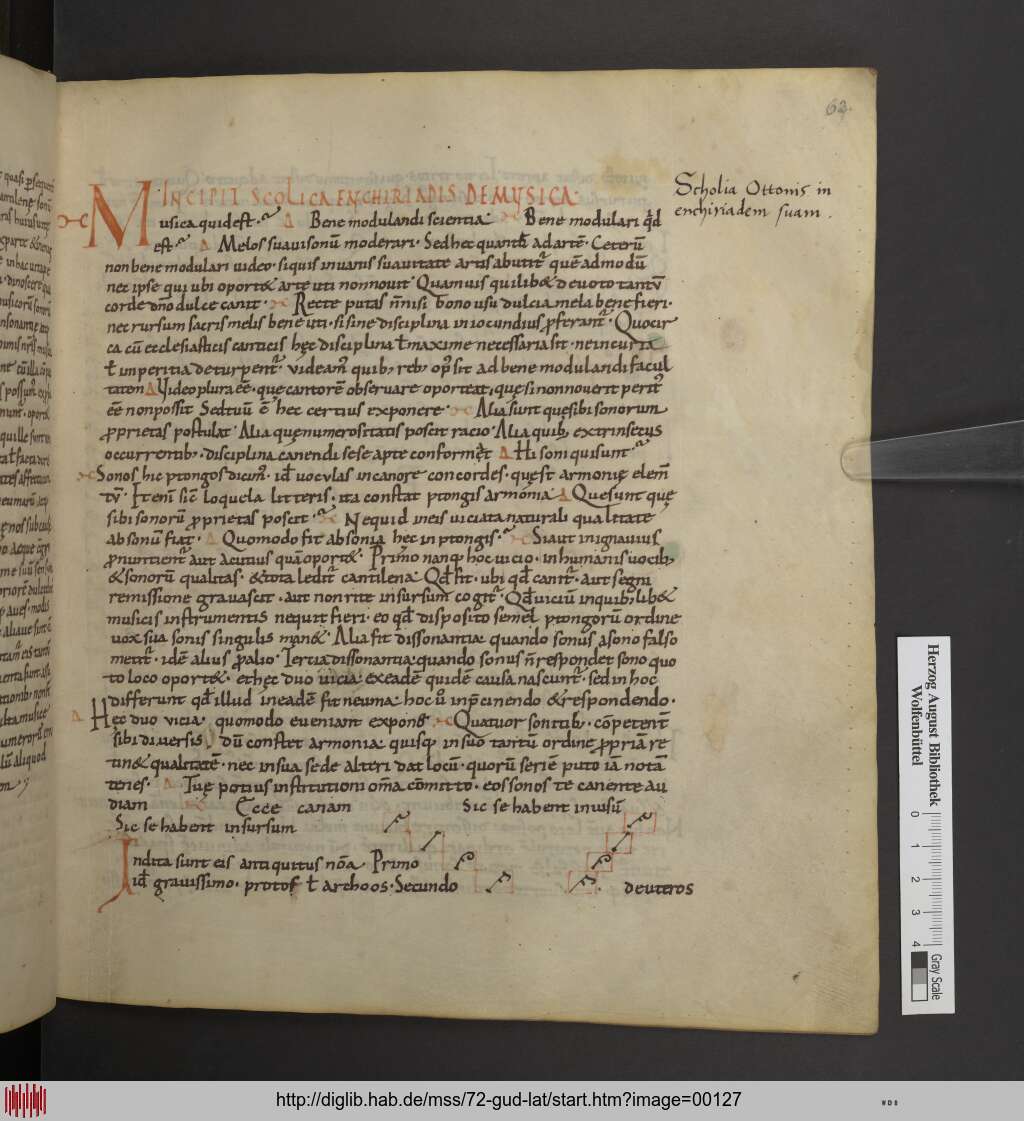 62.
Scholia Ottonis in
enchiriadem suam.
INCIPIT SCOLICA ENCHIRIADIS DE MUSICA.
Musica quid est. Bene modulandi scientia. Bene modulari qđ
est. Melos suauisonū moderari. Sed hec quantū ad artē. Ceterū
non bene modulari uideo. siquis in uanis suauitate artis abutit̄ quē admodū
nec ipse qui ubi oport& arte uti non nouit. Quamuis quilib& deuoto tantū
corde dn̄o dulce canit. Recte putas n̄ nisi bono usu dulcia mela bene fieri.
nec rursum sacris melis bene uti. si sine disciplina iniocundius ꝓferant̄. Quocir
ca cū ecclesiasticis canticis hęc disciplina ł maxime necessaria sit. ne incuria
ł imperitia deturpent̄. uideam̄ quib; reb; op̄ sit ad bene modulandi facul
tatem Video plura eē. que cantorē obseruare oporteat, que si non nouerit perit'
eē non possit Sed tuū ē hec certius exponere. Alia sunt quę sibi sonorum
ꝓprietas postulat. Alia quę numerositatis poscit racio. Alia quib; extrinsecus
occurrentib;. disciplina canendi sese apte conform&. Hi soni qui sunt.
Sonos hic ptongos dicim'. id uoculas in canore concordes. quę st armonię elem̄
tū. Ut enī sic loquela litteris. ita constat ptongis armonia. Que sunt quę
sibi sonorū ꝓprietas poscit. Ne quid in eis uiciata naturali qualitate
absonū fiat. Quomodo fit absonia hec in ptongis. Si aut ignauius
ꝓnuntient̄ aut acutius quā oport&. Primo nanq; hoc uicio. in humanis uocib;
& sonorū qualitas. & tota ledit̄ cantilena. Qđ fit. ubi qđ canit̄. aut segni
remissione grauascit. aut non rite in sursum cogit̄. Qđ uiciū in quib; lib&
musicis instrumentis nequit fieri. eo qđ disposito semel ptongorū ordine
uox sua sonis singulis man&. Alia fit dissonantia quando sonus a sono falso
metit̄. idē alius ꝓ alio. Tertia dissonantia. quando sonus n̄ respondet sono quo
to loco oport&. et hec duo uicia ex eadē quidē causa nascunt̄. sed in hoc
differunt qđ illud in eadē fit neuma hoc ū inp̄cinendo & respondendo.
Hec duo vicia quomodo eueniant expone. Quatuor sonitib; cōpetent̄
sibi diuersis dū constet armonia quisq; in suo tantū ordine ꝓpriā re
tin& qualitatē. nec in sua sede alteri dat locū. quorū seriē puto iā notā
tenes. Tuę potius institutioni om̄a cōmitto. eos sonos te canente au
diam Ecce canam Sic se habent in iusū
Sic se habent in sursum
Indita sunt eis antiquitus nōa. Primo
id grauissimo. protos ł archoos. Secundo deuteros
Herzog August Bibliothek
Wolfenbüttel
0 1 2 3 4
Gray Scale
http://diglib.hab.de/mss/72-gud-lat/start.htm?image=00127